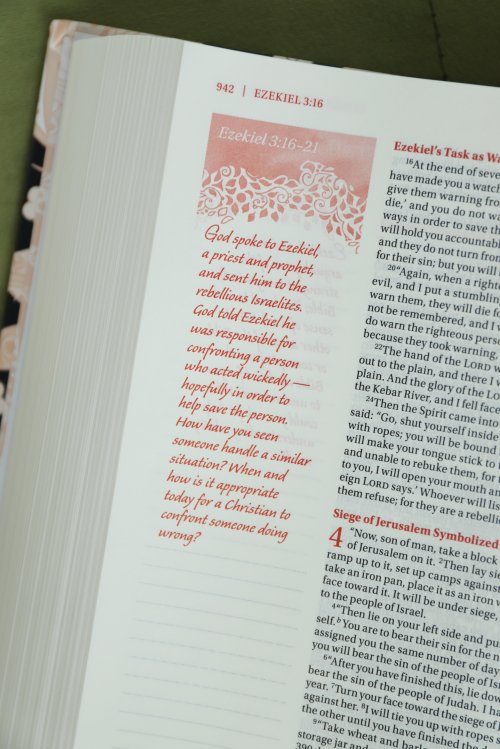 942 | EZEKIEL 3:16
Ezekiel 3:16–21
God spoke to Ezekiel,
a priest and prophet,
and sent him to the
rebellious Israelites.
God told Ezekiel he
was responsible for
confronting a person
who acted wickedly —
hopefully in order to
help save the person.
How have you seen
someone handle a similar
situation? When and
how is it appropriate
today for a Christian to
confront someone doing
wrong?
Ezekiel's Task as
16"At the end of
have made you a
give them warning
die,' and you do not
ways in order to save
will hold you
and they do not turn from
for their sin; but you will
20"Again, when a
evil, and I put a
warn them, they will die
not be remembered, and I
do warn the righteous
because they took warning,
22The hand of the LORD
out to the plain, and there I
plain. And the glory of the
the Kebar River, and I fell
24Then the Spirit came into
said: "Go, shut yourself inside
with ropes; you will be bound
will make your tongue stick to
and unable to rebuke them, for
to you, I will open your mouth
eign LORD says.' Whoever will
them refuse; for they are a
Siege of Jerusalem Symbolized
4 "Now, son of man, take a block
of Jerusalem on it. 2Then lay
ramp up to it, set up camps against
take an iron pan, place it as an iron
face toward it. It will be under siege,
to the people of Israel.
4"Then lie on your left side and put
self.b You are to bear their sin for the
assigned you the same number of
you will bear the sin of the people of
6"After you have finished this, lie
bear the sin of the people of Judah. I
year. 7Turn your face toward the siege of
against her. 8I will tie you up with ropes
the other until you have finished the
9"Take wheat and
storage jar and